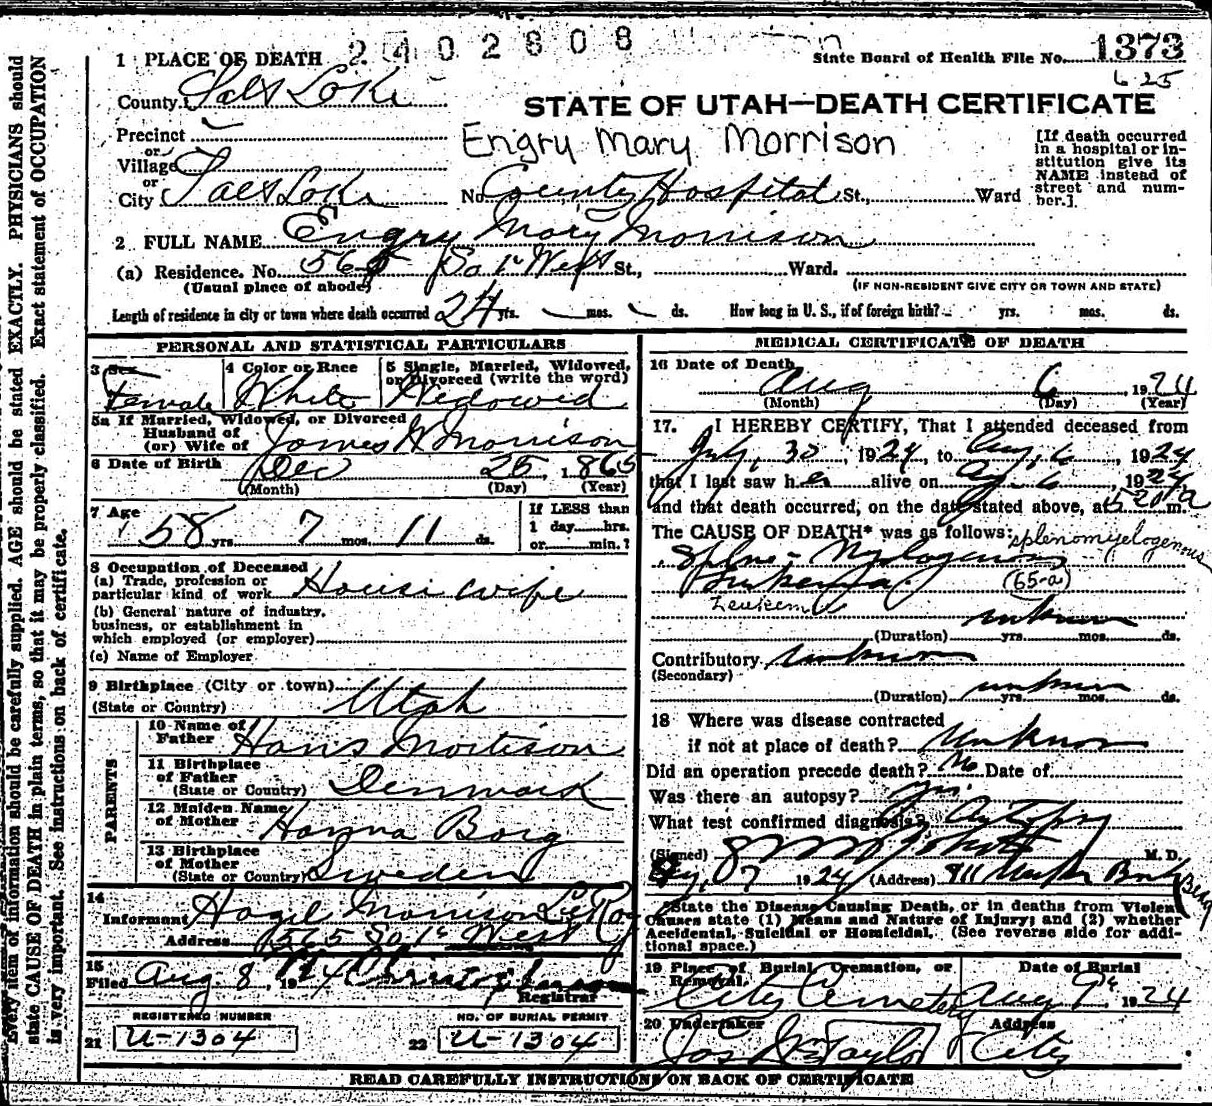 2402608
1 PLACE OF DEATH
State Board of Health File No. 1373
625
County. Salt Lake
STATE OF UTAH—DEATH CERTIFICATE
Precinct
Engry Mary Morrison
[If death occurred in a hospital or institution give its NAME instead of street and number.]
or
Village
or
City Salt Lake No. County Hospital St., Ward
2 FULL NAME Engry Mary Morrison
(a) Residence. No. 565 So 1st West St., Ward.
(Usual place of abode) (IF NON-RESIDENT GIVE CITY OR TOWN AND STATE)
Length of residence in city or town where death occurred 24 yrs. mos. ds. How long in U. S., if of foreign birth? yrs. mos. ds.
PERSONAL AND STATISTICAL PARTICULARS
3 Sex 4 Color or Race 5 Single, Married, Widowed,
or Divorced (write the word)
Female White Widowed
5a If Married, Widowed, or Divorced
Husband of
(or) Wife of James H Morrison
6 Date of Birth Dec 25, 1865
(Month) (Day) (Year)
7 Age If LESS than
58 yrs. 7 mos. 11 ds. 1 day hrs.
or min.?
8 Occupation of Deceased
(a) Trade, profession or
particular kind of work Housewife
(b) General nature of industry,
business, or establishment in
which employed (or employer)
(c) Name of Employer
9 Birthplace (City or town)
(State or Country) Utah
PARENTS
10 Name of
Father Hans Mortison
11 Birthplace
of Father
(State or Country) Denmark
12 Maiden Name
of Mother Hanna Borg
13 Birthplace
of Mother
(State or Country) Sweden
14
Informant Morrison
Address 565 So 1st West
15
Filed Aug. 8, 1924
Registrar
REGISTERED NUMBER NO. OF BURIAL PERMIT
21 U-1304 22 U-1304
MEDICAL CERTIFICATE OF DEATH
16 Date of Death
Aug 6 1924
(Month) (Day) (Year)
17. I HEREBY CERTIFY, That I attended deceased from
July, 30, 1924, to Aug, 6, 1924
that I last saw her alive on Aug 6, 1924
and that death occurred, on the date stated above, at 520 a m.
The CAUSE OF DEATH* was as follows: splenomyelogenous
Splne - Mylogenous
Lukemia (65-a)
Leukemia
unknown
(Duration) yrs. mos. ds.
Contributory unknown
(Secondary)
(Duration) unknown yrs. mos. ds.
18 Where was disease contracted
if not at place of death? Unknown
Did an operation precede death? No Date of
Was there an autopsy? Yes.
What test confirmed diagnosis? Autopsy
(Signed) M. D.
Aug, 7 1924 (Address) 911
*State the Disease Causing Death, or in deaths from Violent
Causes state (1) Means and Nature of Injury; and (2) whether
Accidental, Suicidal or Homicidal. (See reverse side for addi-
tional space.)
19 Place of Burial, Cremation, or Date of Burial
Removal.
City Cemetery Aug 9th, 1924
20 Undertaker Address
Jos Wm Taylor City
READ CAREFULLY INSTRUCTIONS ON BACK OF CERTIFICATE
Every item of information should be carefully supplied. AGE should be stated EXACTLY. PHYSICIANS should
state CAUSE OF DEATH in plain terms, so that it may be properly classified. Exact statement of OCCUPATION
is very important. See instructions on back of certificate.